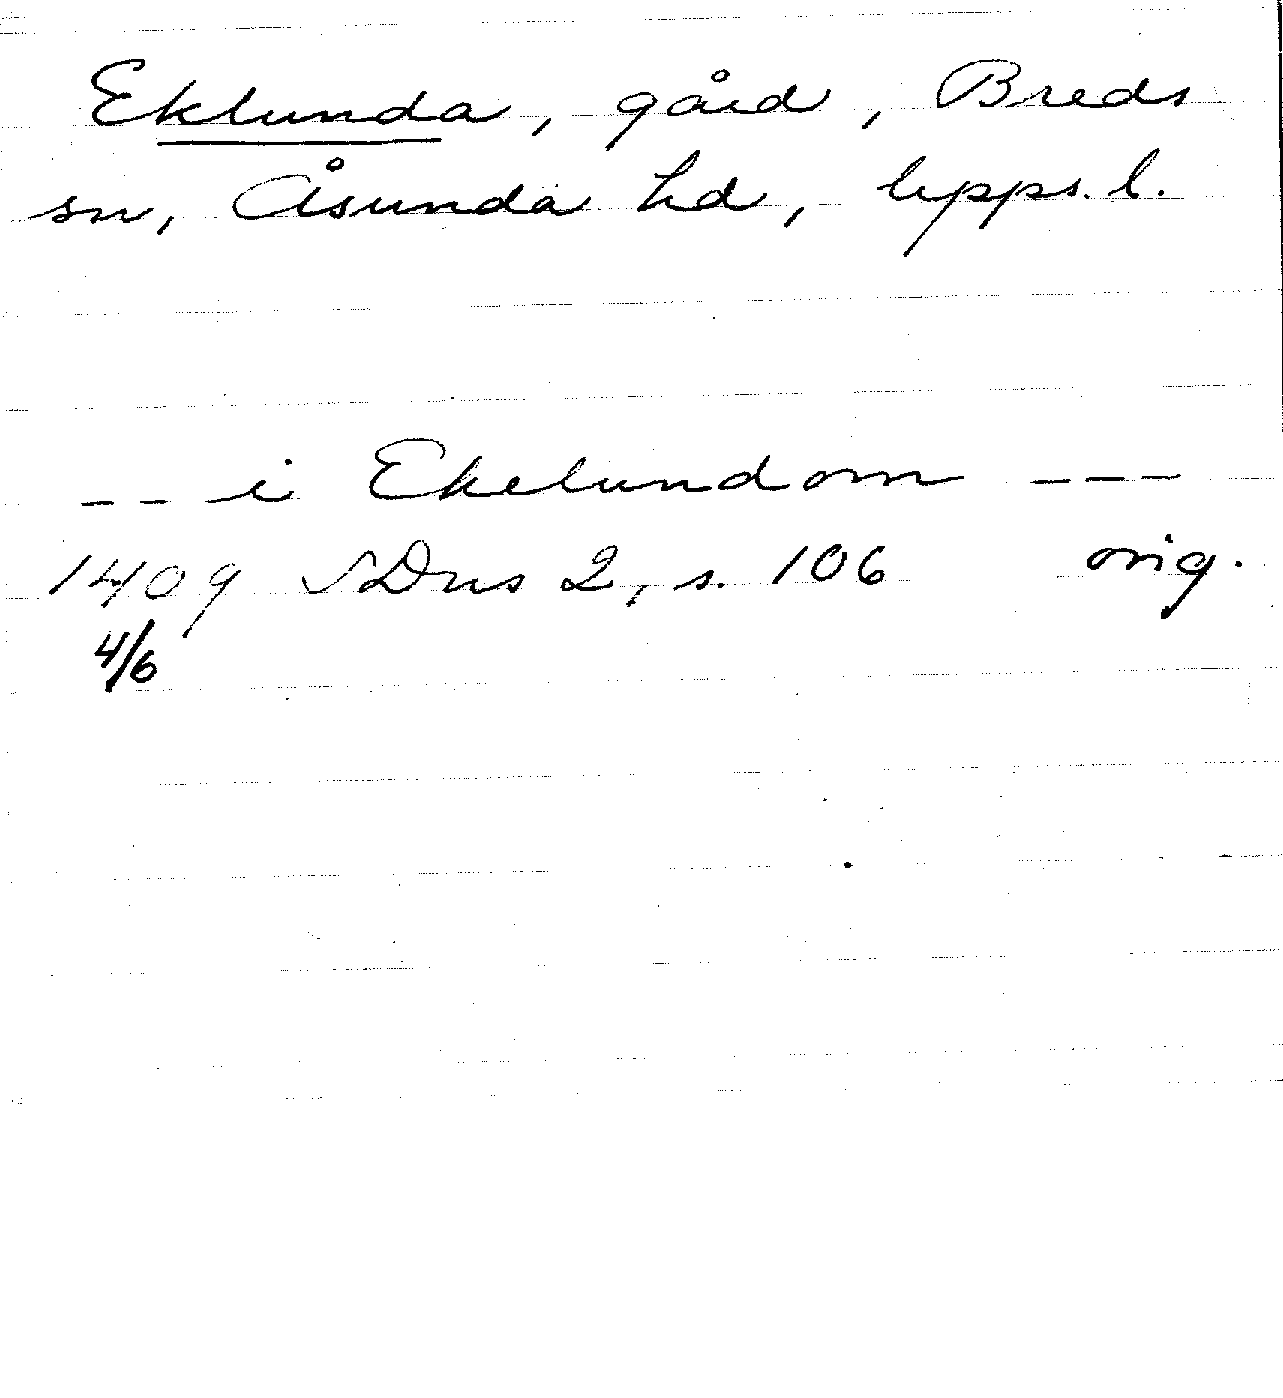 Eklunda, gård, Breds
sn, Åsunda hd, Upps. l.
-- i Ekelundom ---
1409 SDns 2, s. 106 orig.
4/6